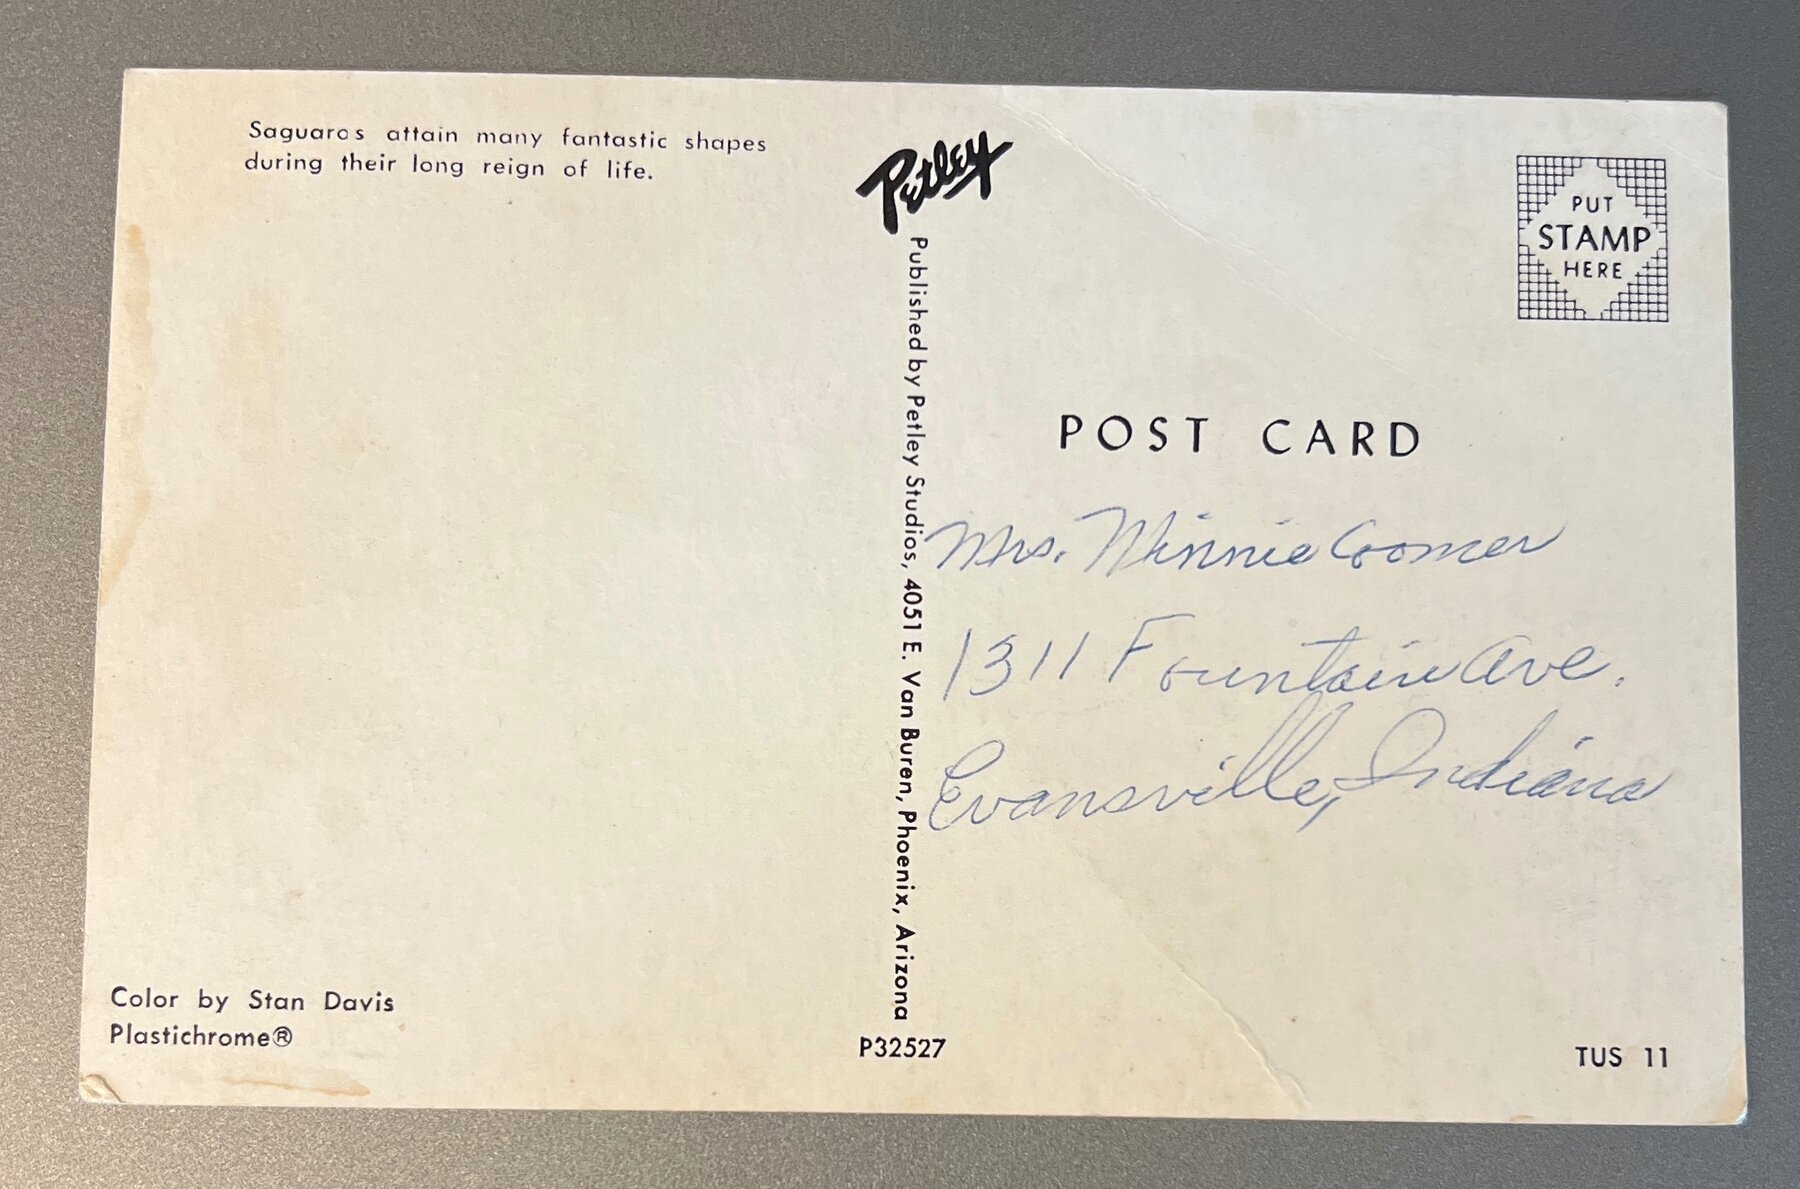 Saguaros attain many fantastic shapes
during their long reign of life.
Petley
PUT
STAMP
HERE
Published by Petley Studios, 4051 E. Van Buren, Phoenix, Arizona
POST CARD
Mrs. Minnie Coomer
1311 Fountain Ave.
Evansville, Indiana
Color by Stan Davis
Plastichrome®
P32527
TUS 11